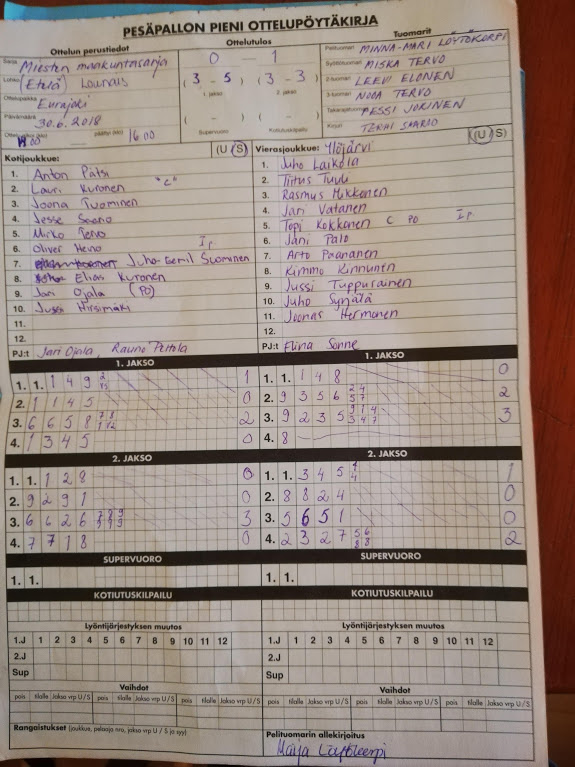 PESÄPALLON PIENI OTTELUPÖYTÄKIRJA
Ottelun perustiedot
Ottelutulos
Tuomarit
Sarja Miesten maakuntasarja
0 1
Pelituomari MINNA-MARI LÖYTÖKORPI
Lohko (Etelä) Lounais
(3 - 5) (3 - 3)
Syöttötuomari MISKA TERVO
1. jakso 2. jakso
2-tuomari LEEVI ELONEN
Ottelupaikka Eurajoki
3-tuomari NOOA TERVO
Päivämäärä 30.6.2018
( - ) ( - )
Takarajatuomari PESSI JOKINEN
Ottelu alkoi (klo) 00 päättyi (klo) 1600
Supervuoro Kotiutuskilpailu
Kirjuri SAARIO
Kotijoukkue: (U / S)
Vierasjoukkue: Ylöjärvi (U / S)
1. Anton Patsi
2. Lauri Kuronen "C"
3. Joona Tuominen
4. Jesse Saario
5. Mirko Tervo
6. Oliver Heino Ip
7. Juho-Eemil Suominen
8. Elias Kuronen
9. Jari Ojala (PO)
10. Jussi Hirsimäki
11.
12.
PJ:t Jari Ojala, Rauno Peltola
1. Juho Laikola
2. Tiitus Tuuli
3. Rasmus Mikkonen
4. Jari Vatanen
5. Topi Kokkonen C PO Ip
6. Jani Palo
7. Arto Paananen
8. Kimmo Kinnunen
9. Jussi Tuppurainen
10. Juho Synjälä
11. Joonas Hermonen
12.
PJ:t Elina Sonne
1. JAKSO
1. 1. 1 4 9 1
2. 1 1 4 5 0
3. 6 6 5 8 2
4. 1 3 4 5 0
1. JAKSO
1. 1. 1 4 8 0
2. 9 3 5 6 2 4 5 7 2
3. 9 2 3 5 9 1 4 3 4 7 3
4. 8
2. JAKSO
1. 1. 1 2 8 0
2. 9 2 9 1 0
3. 6 6 2 6 3
4. 7 7 1 8 0
2. JAKSO
1. 1. 3 4 5 1
2. 8 8 2 4 0
3. 5 6 5 1 0
4. 2 3 2 7 5 6 8 8 2
SUPERVUORO
1. 1.
SUPERVUORO
1. 1.
KOTIUTUSKILPAILU
KOTIUTUSKILPAILU
Lyöntijärjestyksen muutos
1.J 1 2 3 4 5 6 7 8 9 10 11 12
2.J
Sup
Lyöntijärjestyksen muutos
1.J 1 2 3 4 5 6 7 8 9 10 11 12
2.J
Sup
Vaihdot
pois tilalle Jakso vrp U / S pois tilalle Jakso vrp U / S
Vaihdot
pois tilalle Jakso vrp U / S pois tilalle Jakso vrp U / S
Rangaistukset (joukkue, pelaaja nro, jakso vrp U / S ja syy)
Pelituomarin allekirjoitus